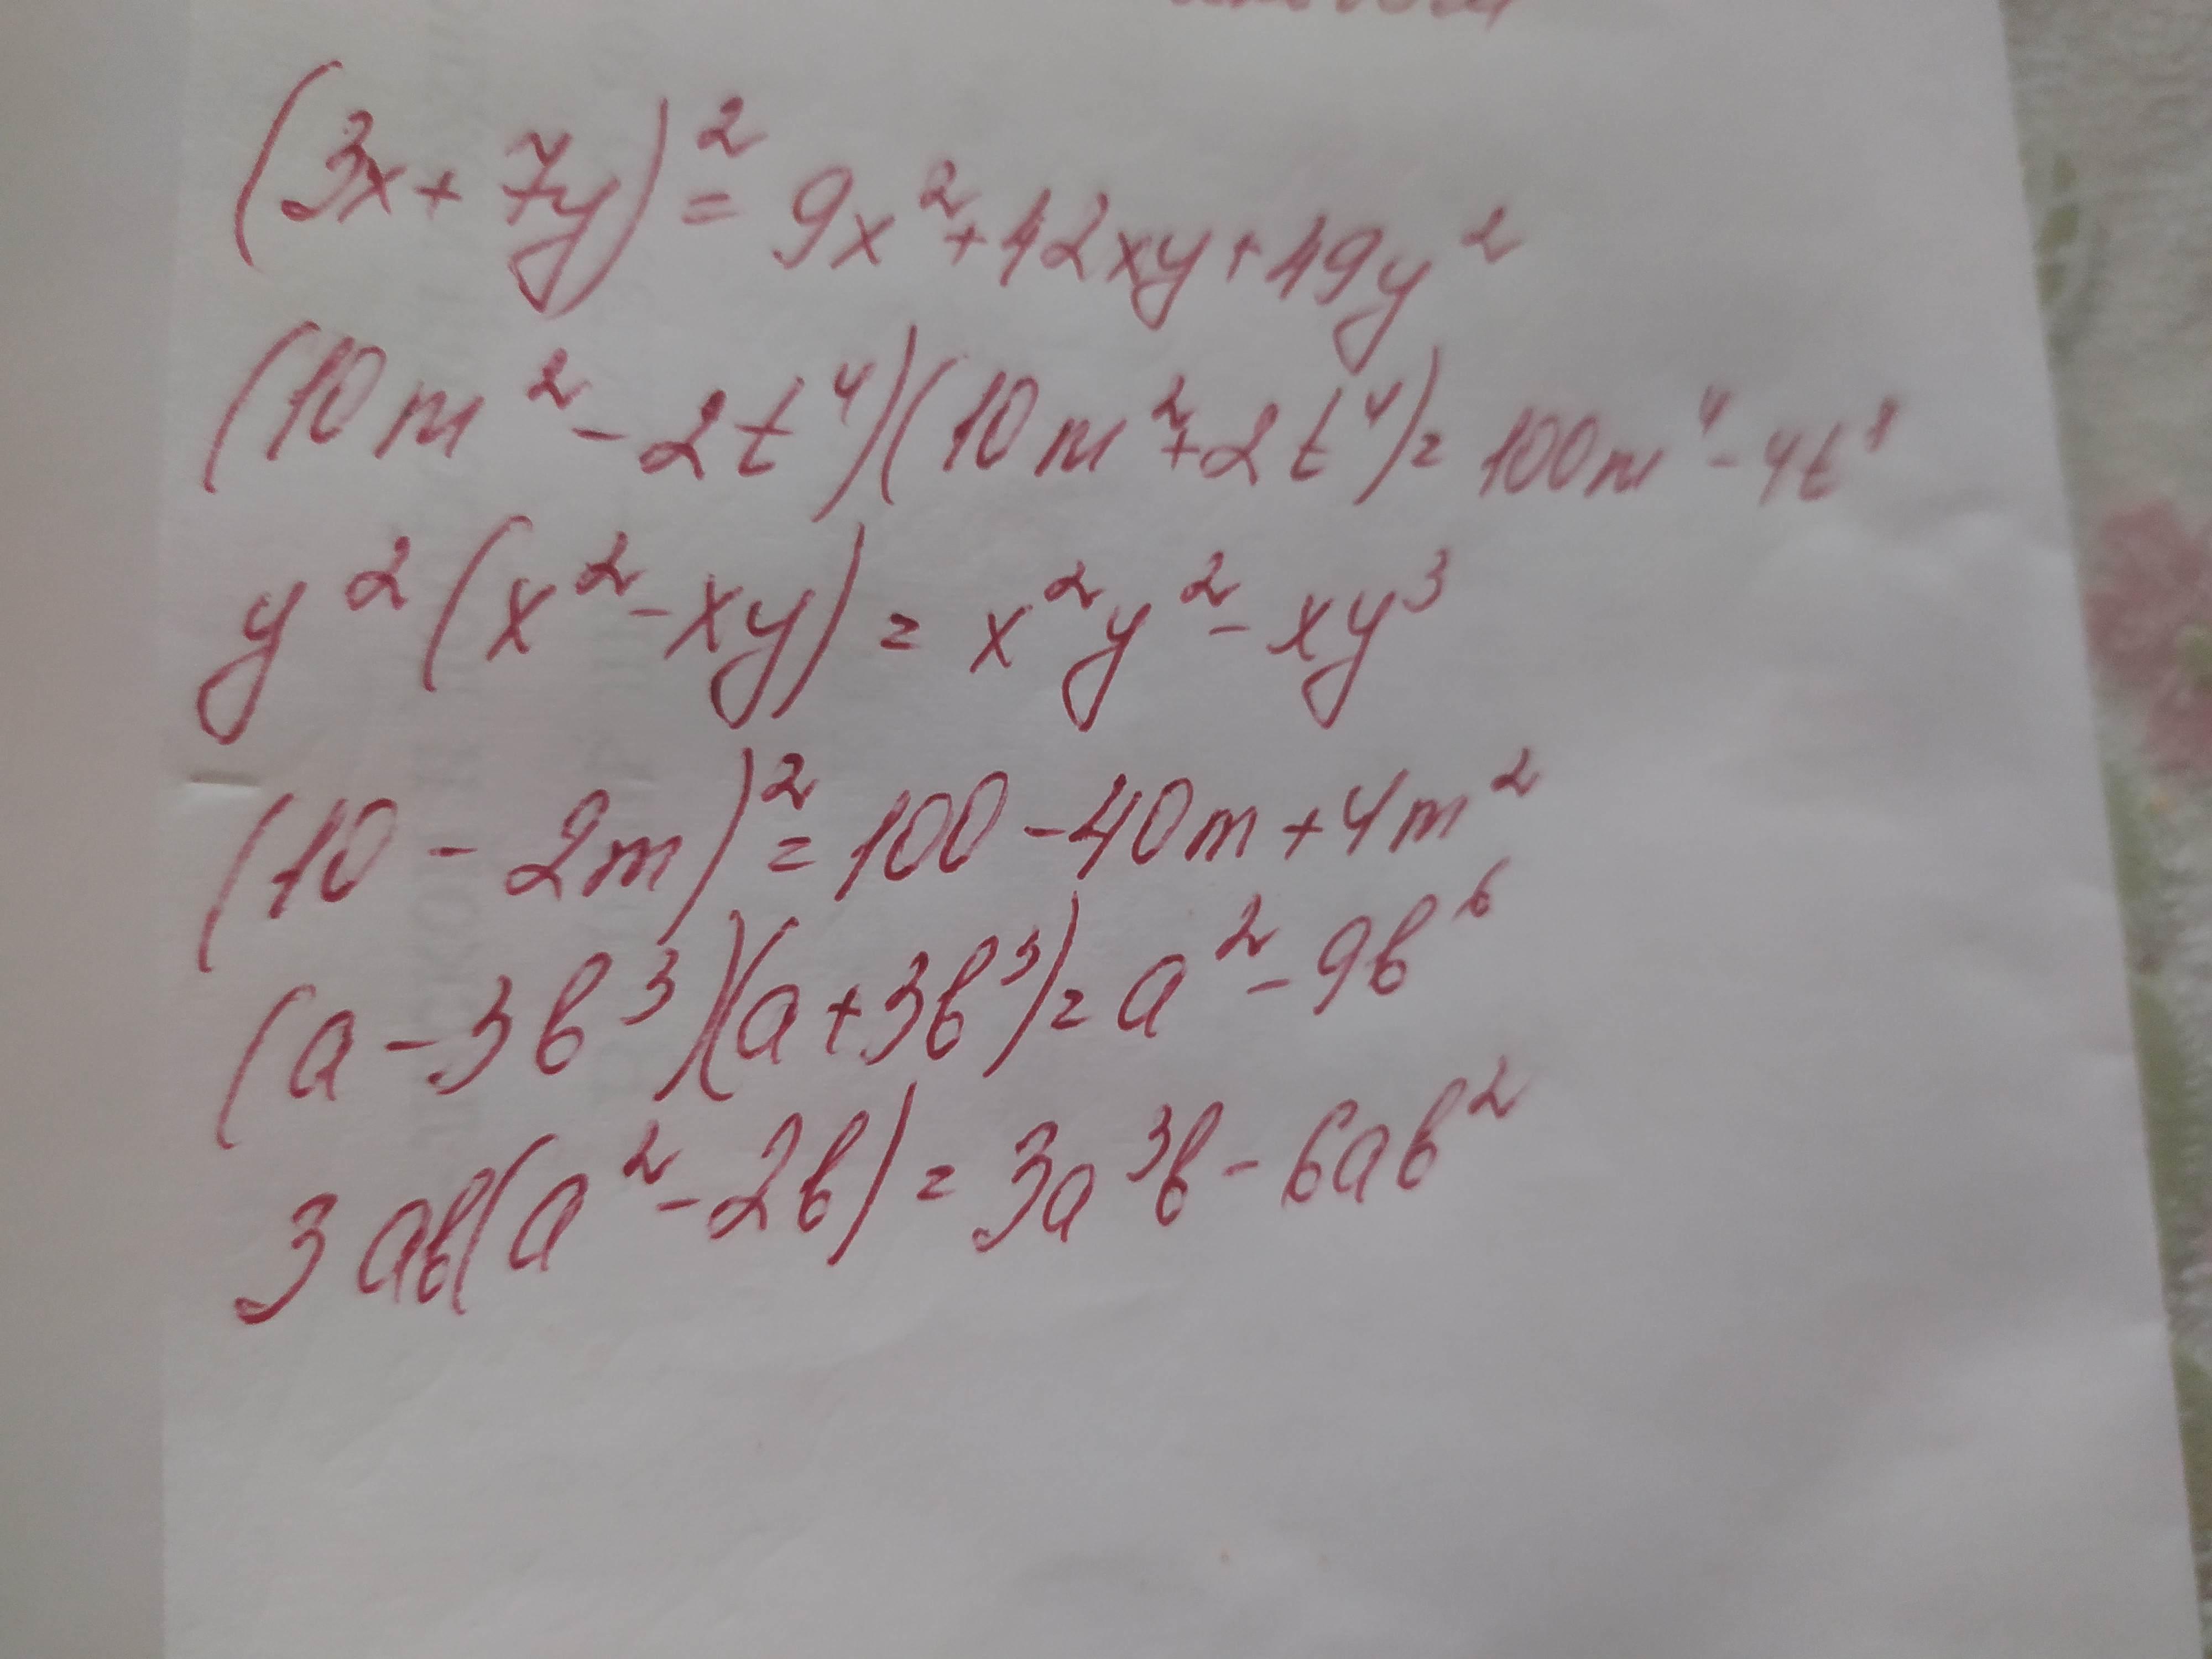 (3x + 7y)² = 9x² + 42xy + 49y²
(10m² - 2t⁴)(10m² + 2t⁴) = 100m⁴ - 4t⁸
y²(x² - xy) = x²y² - xy³
(10 - 2m)² = 100 - 40m + 4m²
(a - 3b³)(a + 3b³) = a² - 9b⁶
3ab(a² - 2b) = 3a³b - 6ab²